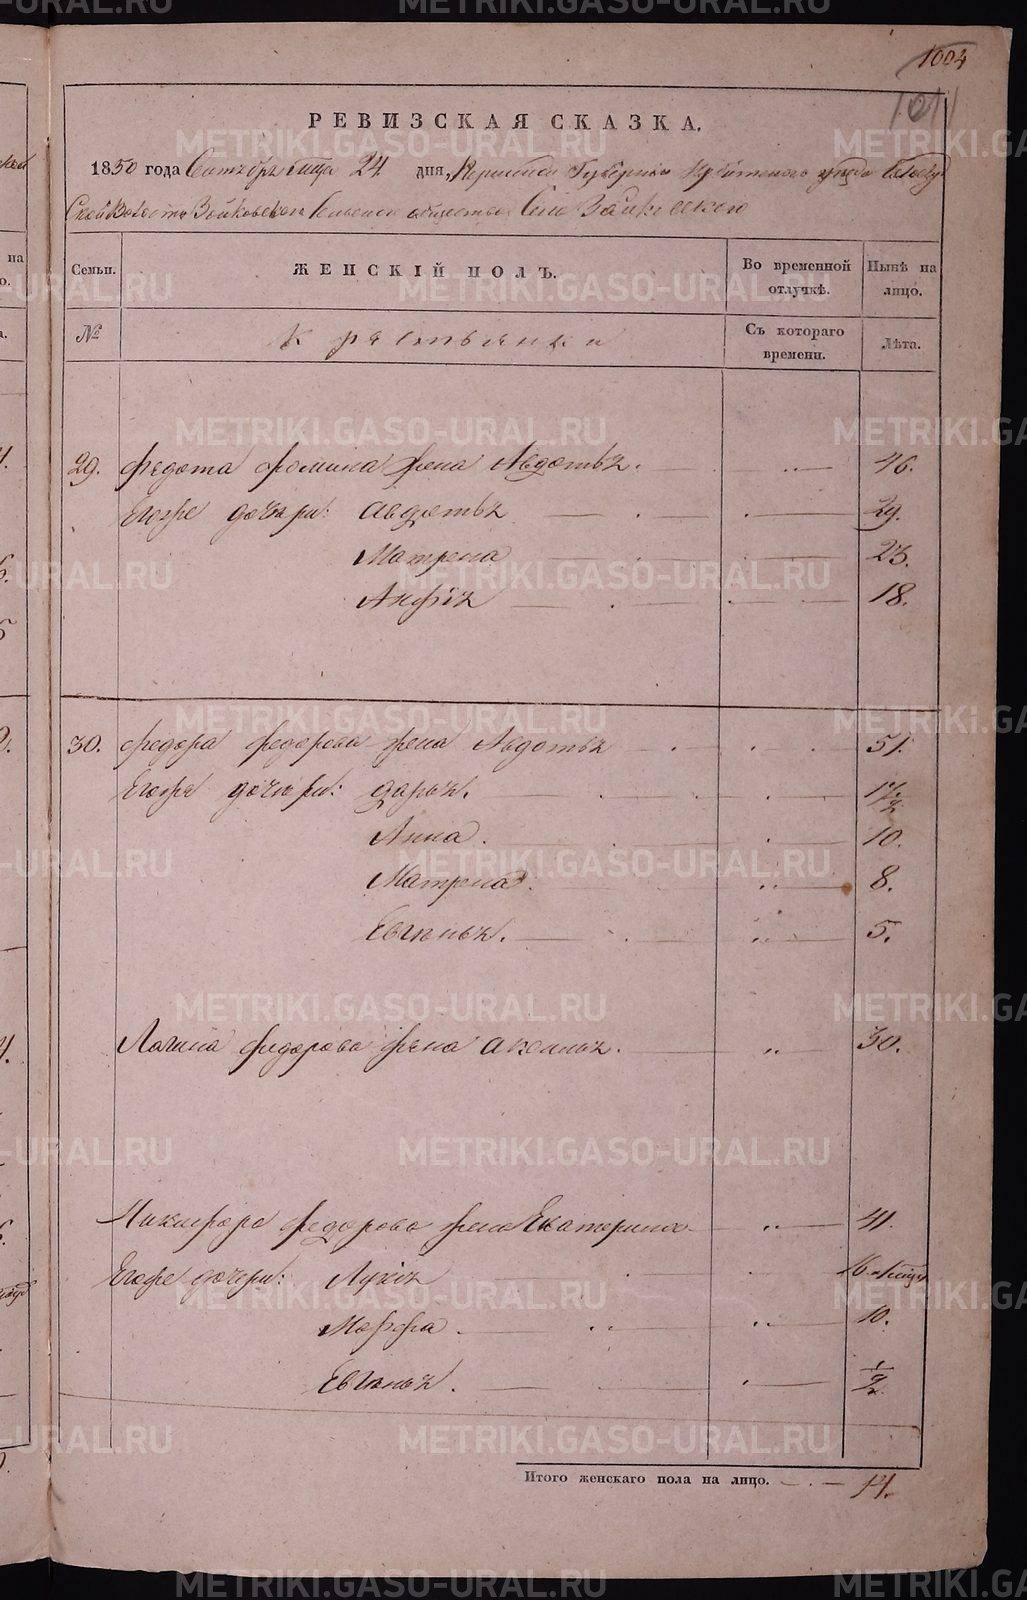 1004
1011
РЕВИЗСКАЯ СКАЗКА.
1850 года Сентября месяца 24 дня, Пермской Губернии Ирбитского уезда
Волости Зайковского Сельского общества Села Зайковского
Семьи. ЖЕНСКІЙ ПОЛЪ. Во временной отлучкѣ. Нынѣ на лицо.
№ Крестьянки Съ котораго времени. Лѣта.
29. Федота Фомина жена Авдотья. 46.
Егоже дочери: Авдотья 29.
Матрена 23.
Анфія 18.
30. Федора Федорова жена Авдотья 51.
Егоже дочери: Дарья. 11 1/2
Анна. 10.
Матрена. 8.
Евгенья. 5.
Логина Федорова жена Аксинья. 30.
Никифора Федорова жена Екатерина 41.
Егоже дочери: Лукія
Марфа. 10.
Евгенья. 1/2
Итого женскаго пола на лицо. 14.
METRIKI.GASO-URAL.RU